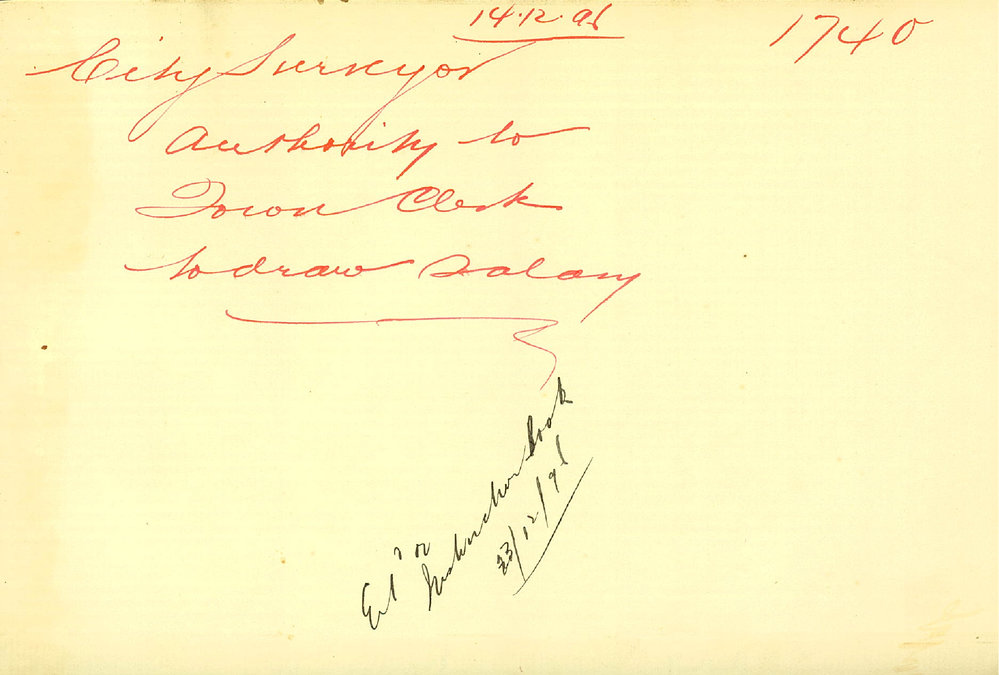 14.12.96
1740
City Surveyor
Authority to
Town Clerk
to draw Salary
Ent'd in
Instruction Book
23/12/96